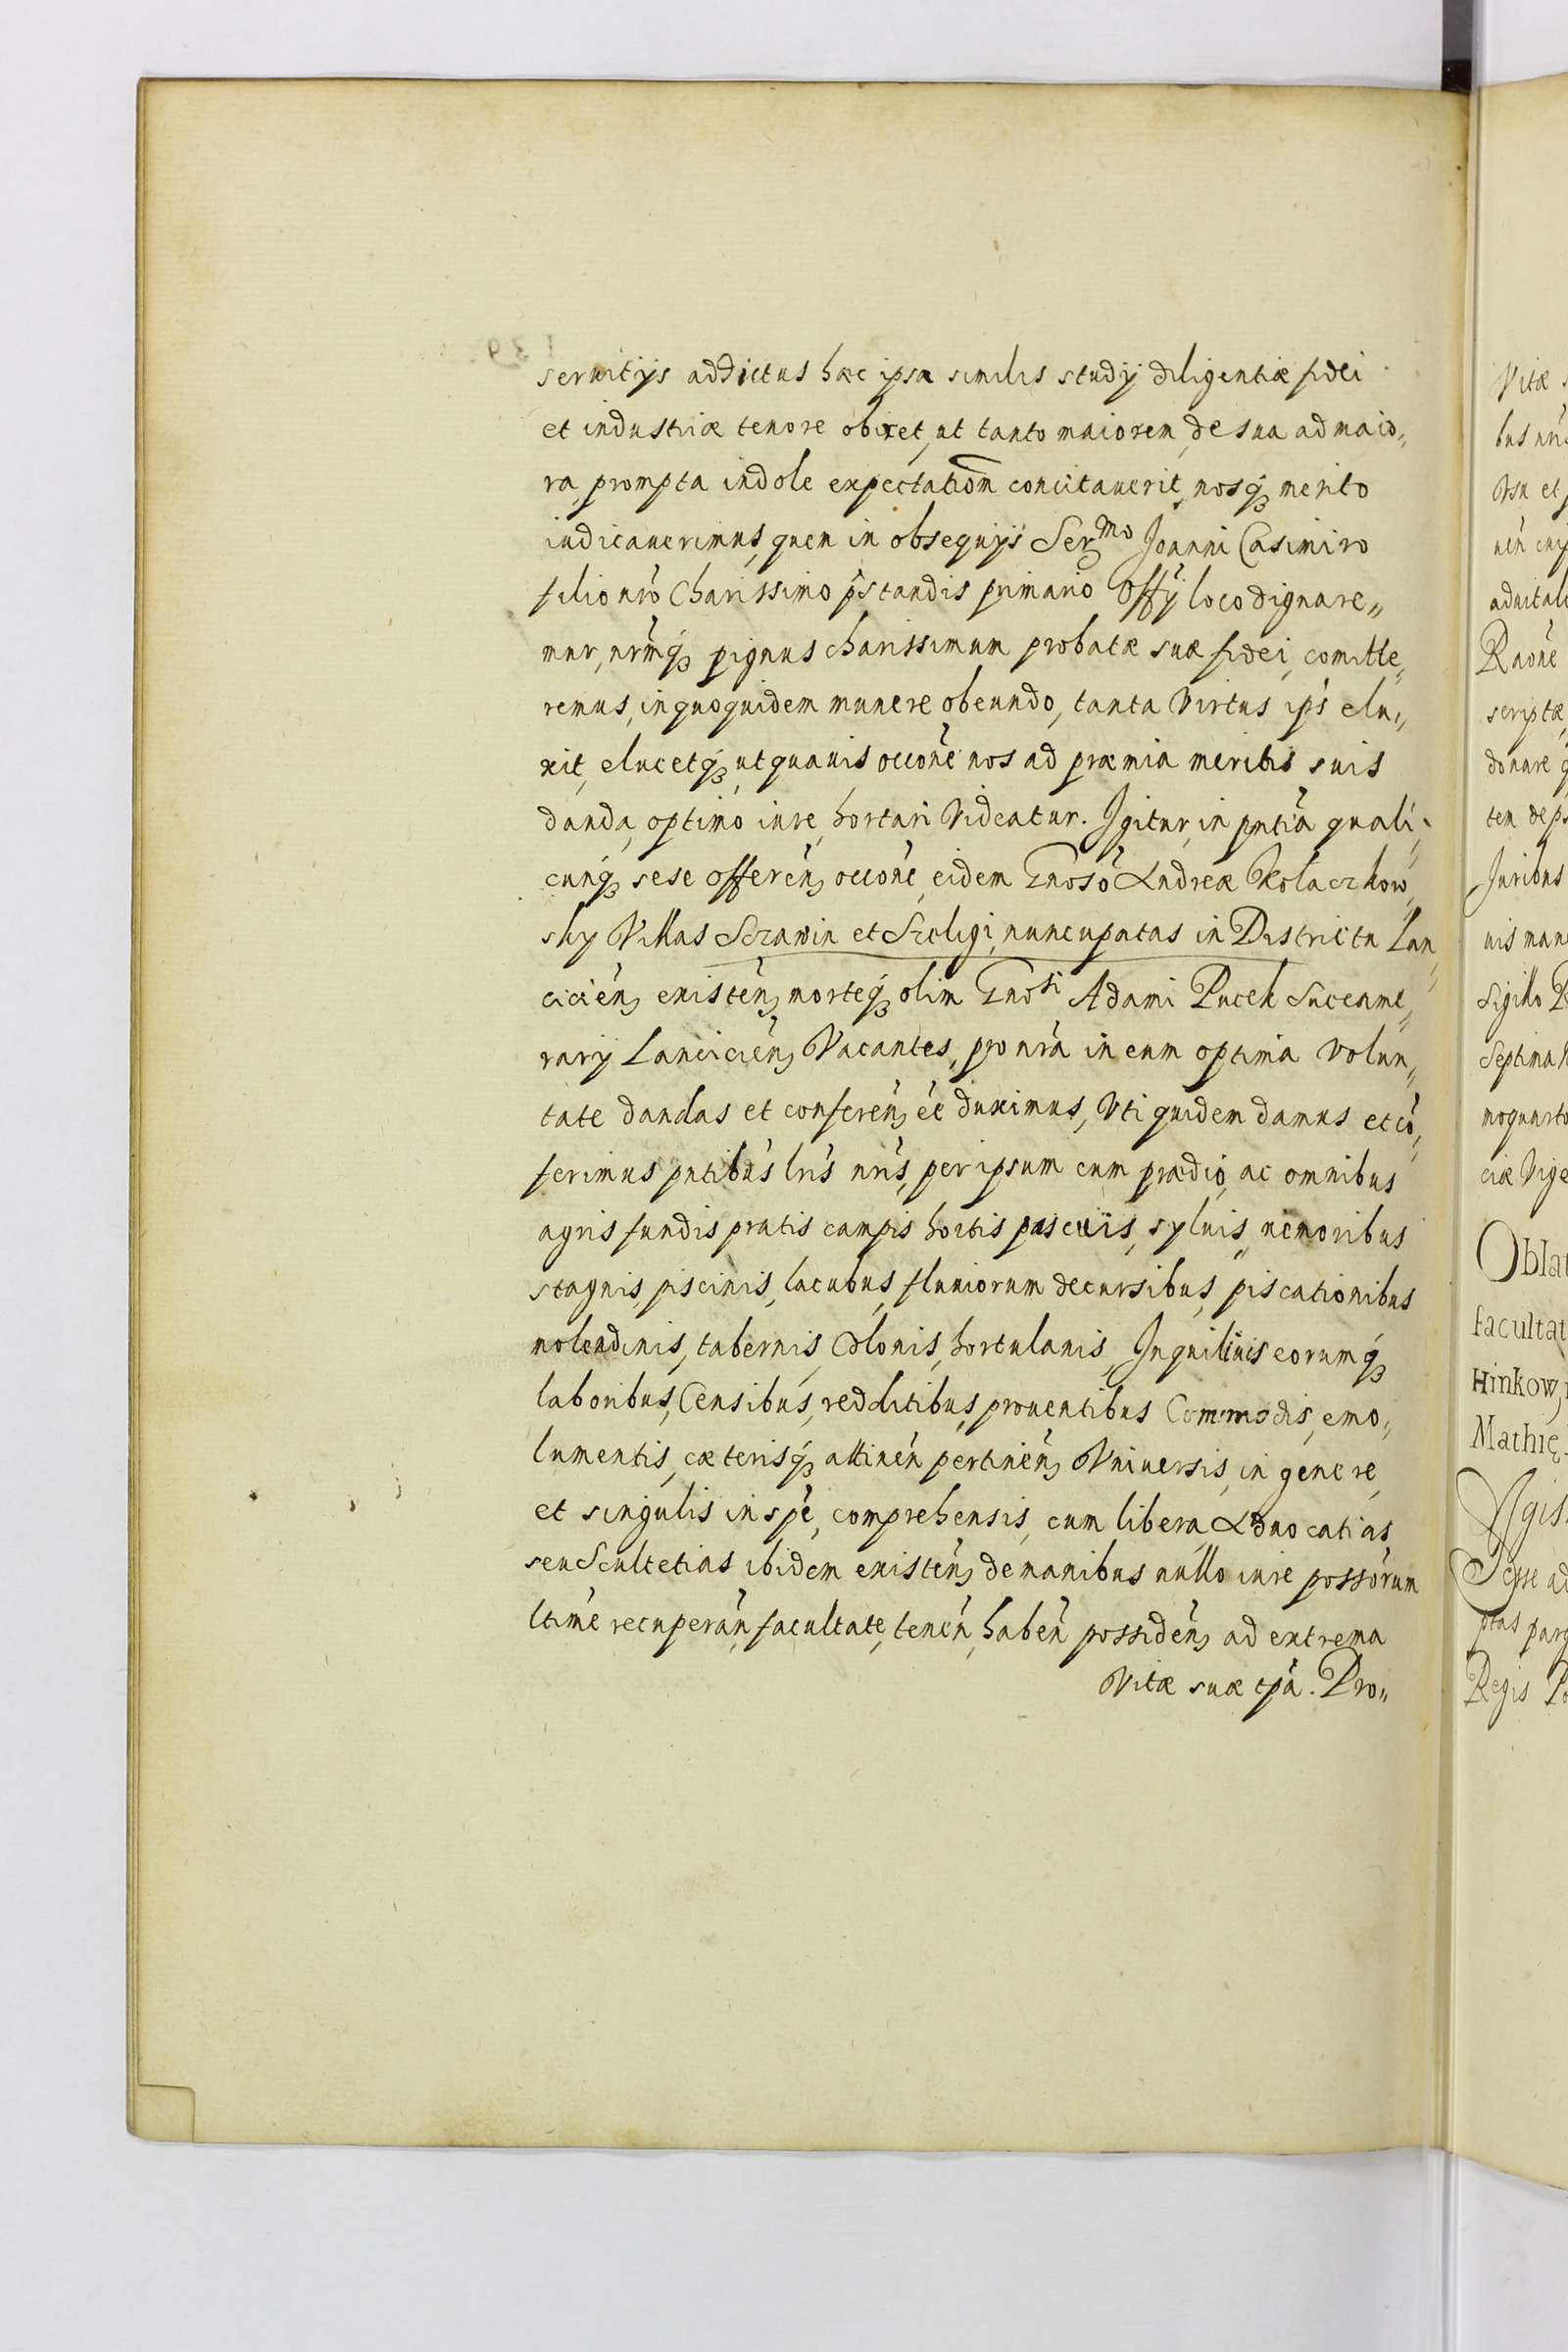 servitijs addictus hæc ipsa similis studij diligentiæ fidei
et industriæ tenore obiret, ut tanto maiorem, de sua ad maio„
ra prompta indole expectation̄m concitauerit, nosq́ȝ merito
iudicauerimus, quem in obsequijs Ser<sup>mo</sup> Joanni Casimiro
filio nr̃o Charissimo p̃standis primario Offij loco dignare„
mur, nr̃mq́ȝ pignus charissimum probatæ suæ fidei, comitte„
remus, in quoquidem munere obeundo, tanta Virtus ip̃s elu„
xit, elucetq́ȝ, ut quauis occōne nos ad præmia meritis suis
danda, optimo iure, hortari Videatur. Igitur, in pn̄tia quali„
cunq́ȝ sese offeren̄, occōne, eidem Gnosō Andreæ Kolaczkow„
sky Villas Szrawin et Szeligi, nuncupatas in Districtu Lan„
cicien̄, existen̄, morteq́ȝ olim Gnosi Adami Pucek Succame„
rarij Lancicien̄, Vacantes, pro nr̃a in eum optima Volun„
tate dandas et conferen̄, ēē duximus, Vti quidem damus et cō„
ferimus pn̄tibus lr̃is nr̃is, per ipsum cum prædio, ac omnibus
agris fundis pratis campis hortis pascuis, syluis, nemoribus
stagnis, piscinis, lacubus, fluuiorum decursibus, piscationibus
molendinis, tabernis, Colonis, hortulanis, Inquilinis eorumq́ȝ
laboribus, Censibus, redditibus, prouentibus Commodis, emo„
lumentis, cæterisq́ȝ attinen̄ pertinen̄, Vniuersis, in genere,
et singulis in spē, comprehensis, cum libera, Aduocatias
seu Scultetias ibidem existen̄, de manibus nullo iure possōrum
ltimē recuperan̄, facultate, tenen̄, haben̄ possiden̄, ad extrema
Vitæ suæ tp̄a. Pro„
Vitæ
bus nris
Vsu et
nen̄
aduital
Raōne
scriptæ
donare
tem
Juribus
uis man
Sigillo
Septima
moquarto
ciæ Vige
Oblat
facultat
Hinkow,
Mathię.
Regis